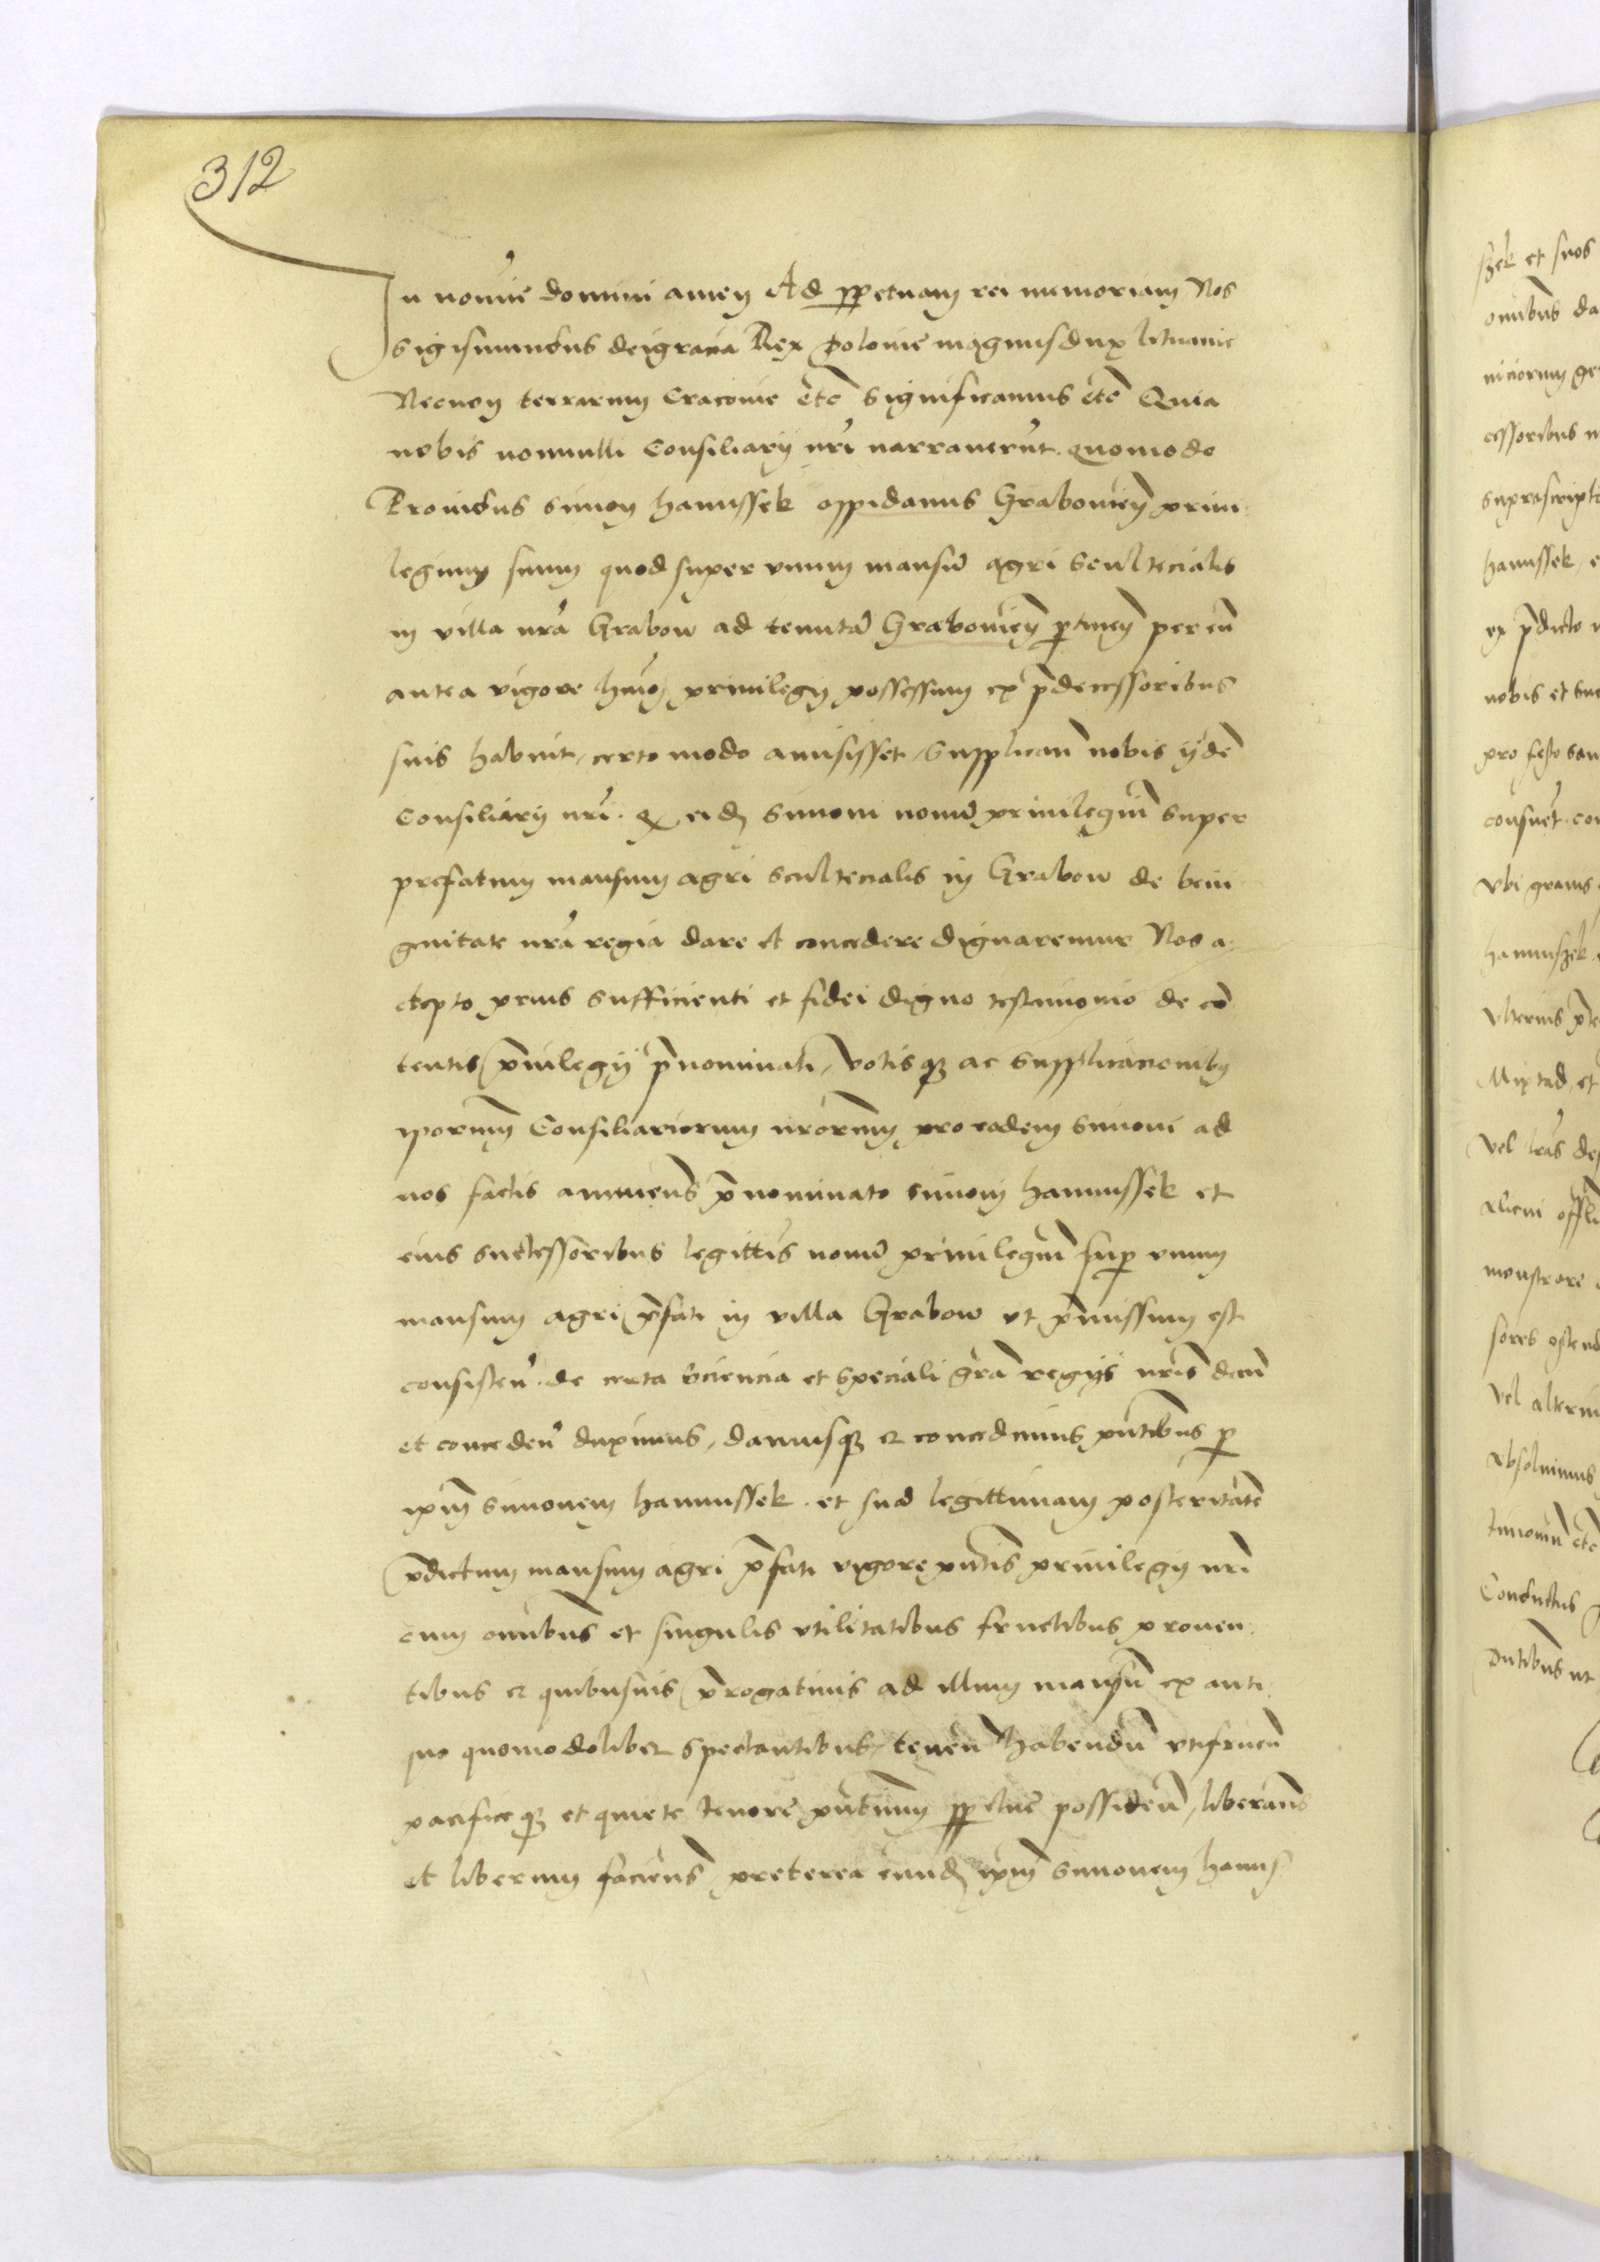 312
In nomine domini amen Ad ppetuam rei memoriam Nos
Sigismundus deigracia Rex polonie magnusdux lituanie
Necnon terrarum Cracovie etc Significamus etc Quia
nobis nonnulli Consiliarij nri narraverut quomodo
Providus Simon hanussek oppidanus Grabovien privi
legium suum quod super unum mansu agri Scultecialis
in villa nra Grabow ad tenuta Grabovien ptinen per eu
antea vigore huio privilegij possessum ex pdecessoribus
suis habuit, certo modo amisisset, Supplican nobis ijde
Consiliarij nri q eid Simoni novu privilegiu super
prefatum mansum agri scultecialis in Grabow de beni
gnitate nra regia dare et concedere dignaremur Nos a
ccepto prius sufficienti et fidei digno testimonio de co
tentis pvilegij pnominati, votisq ac supplicacionibus
iporum Consiliariorum nrorum pro eodem Simoni ad
nos factis annuens pnominato Simoni hanussek et
eius successoribus legittis novu privilegiu sup unum
mansum agri pfati in villa Grabow ut pmissum est
consisten de certa sciencia et speciali gra regijs nris dan
et conceden duximus, damusq et concedimus pntibus p
ipm Simonem hanussek et sua legittimam posteritate
pdictum mansum agri pfati vigore pntis privilegij nri
cum omibus et singulis utilitatibus fructibus proven
tibus et quibusvis progativis ad illum mansu ex anti
quo quomodolibet spectantibus, tenen habendu utifruen
pacificeq et quiete tenore pntium ppetue possiden, liberans
et liberum faciens preterea eund ipm Simonem hanus
szek et suos
omibus da
cessoribus n
suprascript
hanussek, e
ex pdicto
nobis et suc
pro festo san
consuet co
Ubi granis
hanuszek
Ulterius
vel lras de
alicui
monstrare
sores ostend
Vel alteru
absolvimus
Conductus
pntibus ut